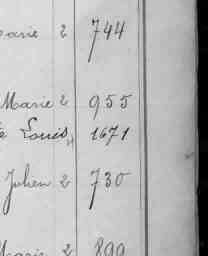 Marie 2 744
Marie 2 955
Louis, 1671
Julien 2 730
Marie 2 899